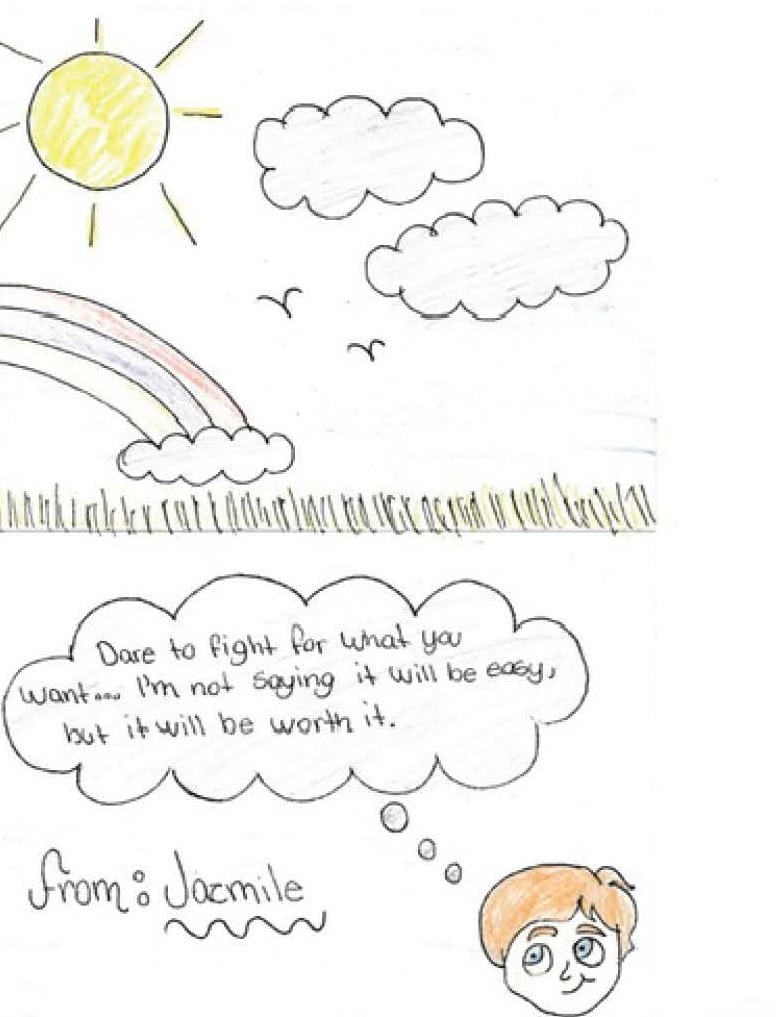 Dare to fight for what you
want... I'm not saying it will be easy,
but it will be worth it.
from: Jacmile